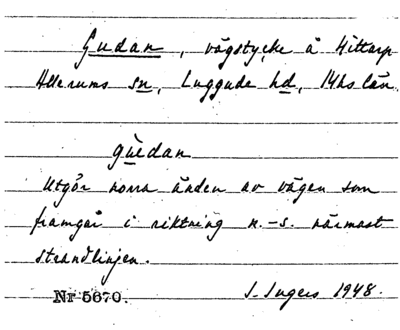 Gudan, vägstycke å Hittarp
Allerums sn, Luggude hd, Mhs län
gùdan
Utgör norra änden av vägen som
framgår i riktning n.-s. närmast
strandlinjen.
Nr 5670. I. Ingers 1948.